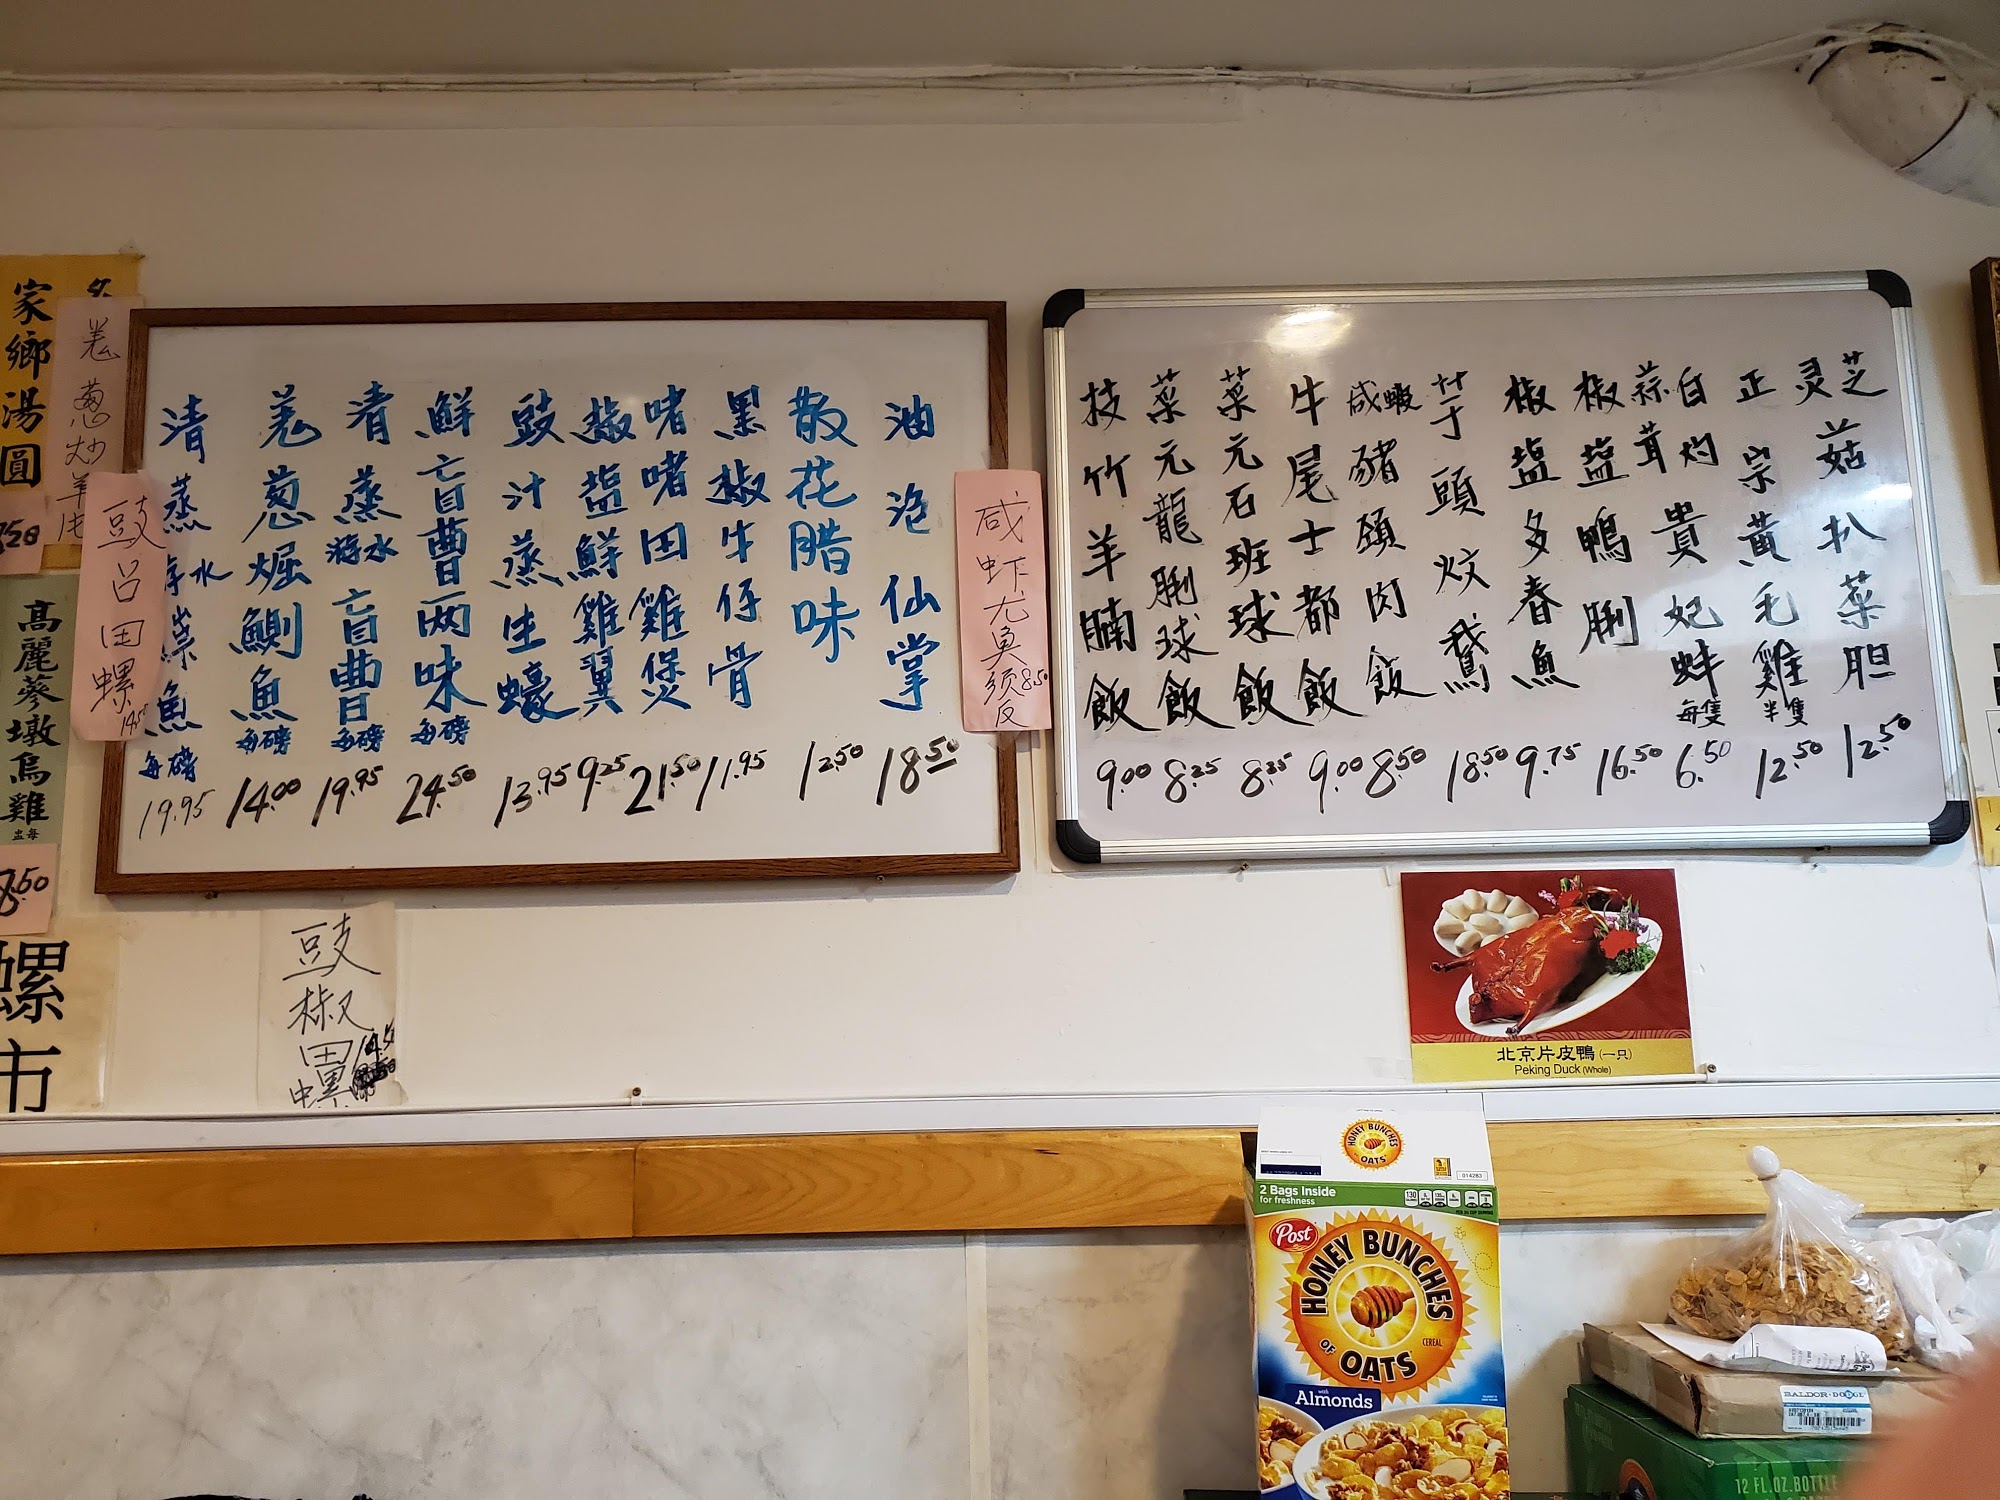 家鄉湯圓
高麗蔘墩烏雞
每盅
8.50
螺市
羌葱炒羊
豉
田螺
14.50
清蒸游水
魚
每磅
19.95
羌葱焗鰂魚
每磅
14.00
青蒸游水盲曹
每磅
19.95
鮮盲曹两味
每磅
24.50
豉汁蒸生蠔
13.95
椒盐鮮雞翼
9.25
啫啫田雞煲
21.50
黑椒牛仔骨
11.95
散花腊味
12.50
油泡仙掌
18.50
咸虾尤魚须反
8.50
豉椒田螺
14.5
技竹羊腩飯
9.00
菜元龍脷球飯
8.25
菜元石班球飯
8.25
牛尾士都飯
9.00
咸蝦豬頸肉飯
8.50
芋頭炆鵝
18.50
椒盐多春魚
9.75
椒盐鴨脷
16.50
白灼
蒜茸
貴妃蚌
每隻
6.50
正宗黃毛雞
半隻
12.50
灵芝菇扒菜胆
12.50
北京片皮鴨 (一只)
Peking Duck (Whole)
HONEY BUNCHES
OF OATS
014283
2 Bags Inside
for freshness
Post
HONEY BUNCHES
OF OATS
CEREAL
with
Almonds
BALDOR·DODGE
12 FL.OZ.BOTTLE